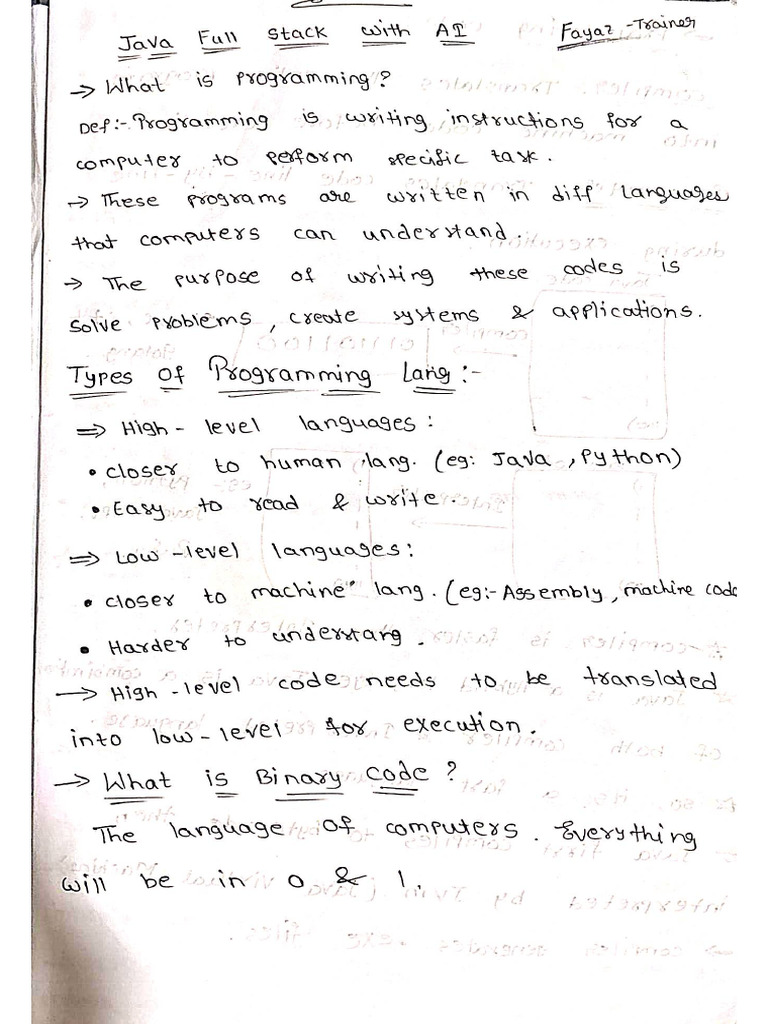 Java Full Stack with AI Fayaz -Trainer
→ What is programming?
Def:- Programming is writing instructions for a
computer to perform specific task.
→ These programs are written in diff languages
that computers can understand.
→ The purpose of writing these codes is
solve problems, create systems & applications.
Types of Programming Lang:-
⇒ High - level languages:
• closer to human lang. (eg: Java, Python)
• Easy to read & write.
⇒ Low -level languages:
• closer to machine lang. (eg:- Assembly, machine code
• Harder to understang.
→ High -level code needs to be translated
into low-level for execution.
→ What is Binary Code?
The language of computers. Everything
will be in 0 & 1.